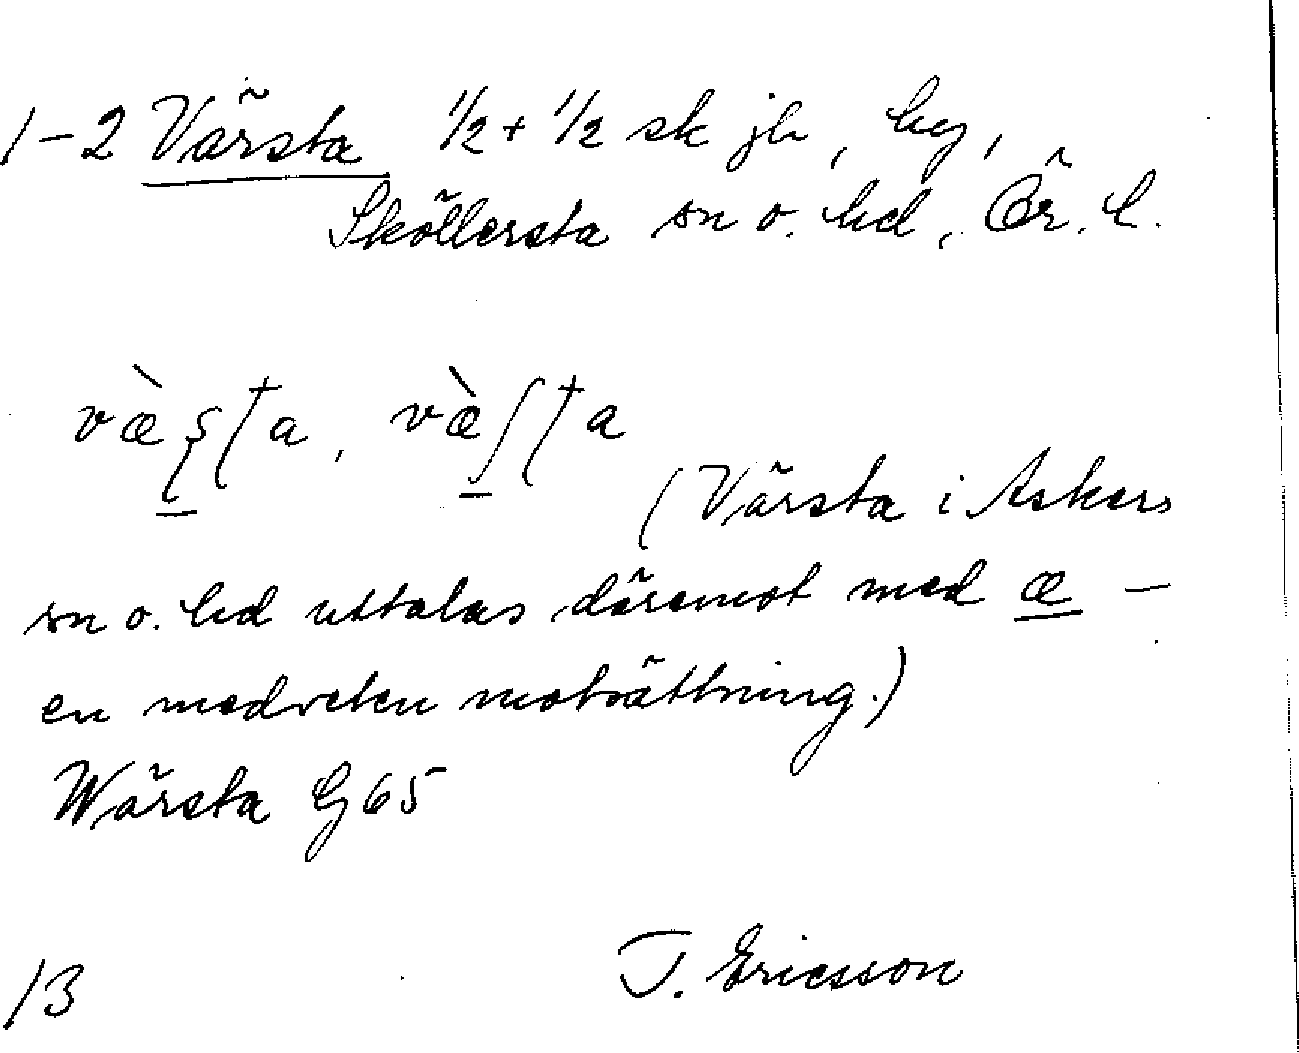 1-2 Värsta 1/2 + 1/2 sk jb, by,
Sköllersta sn o. hd, Ör. l.
væ̀ʂʈa, væ̀ʃʈa
(Värsta i Askers
sn o. hd uttalas däremot med æ —
en medveten motsättning.)
Wärsta G65
13 T. Ericsson